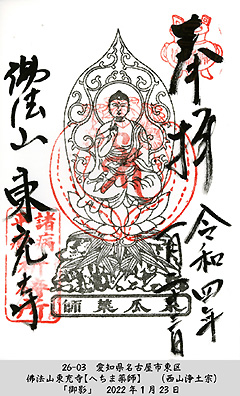 奉拝
令和四年
一月二十三日
佛法山 東充寺
諸病
師薬瓜糸
26-03 愛知県名古屋市東区
佛法山東充寺【へちま薬師】 (西山浄土宗)
「御影」 2022年1月23日